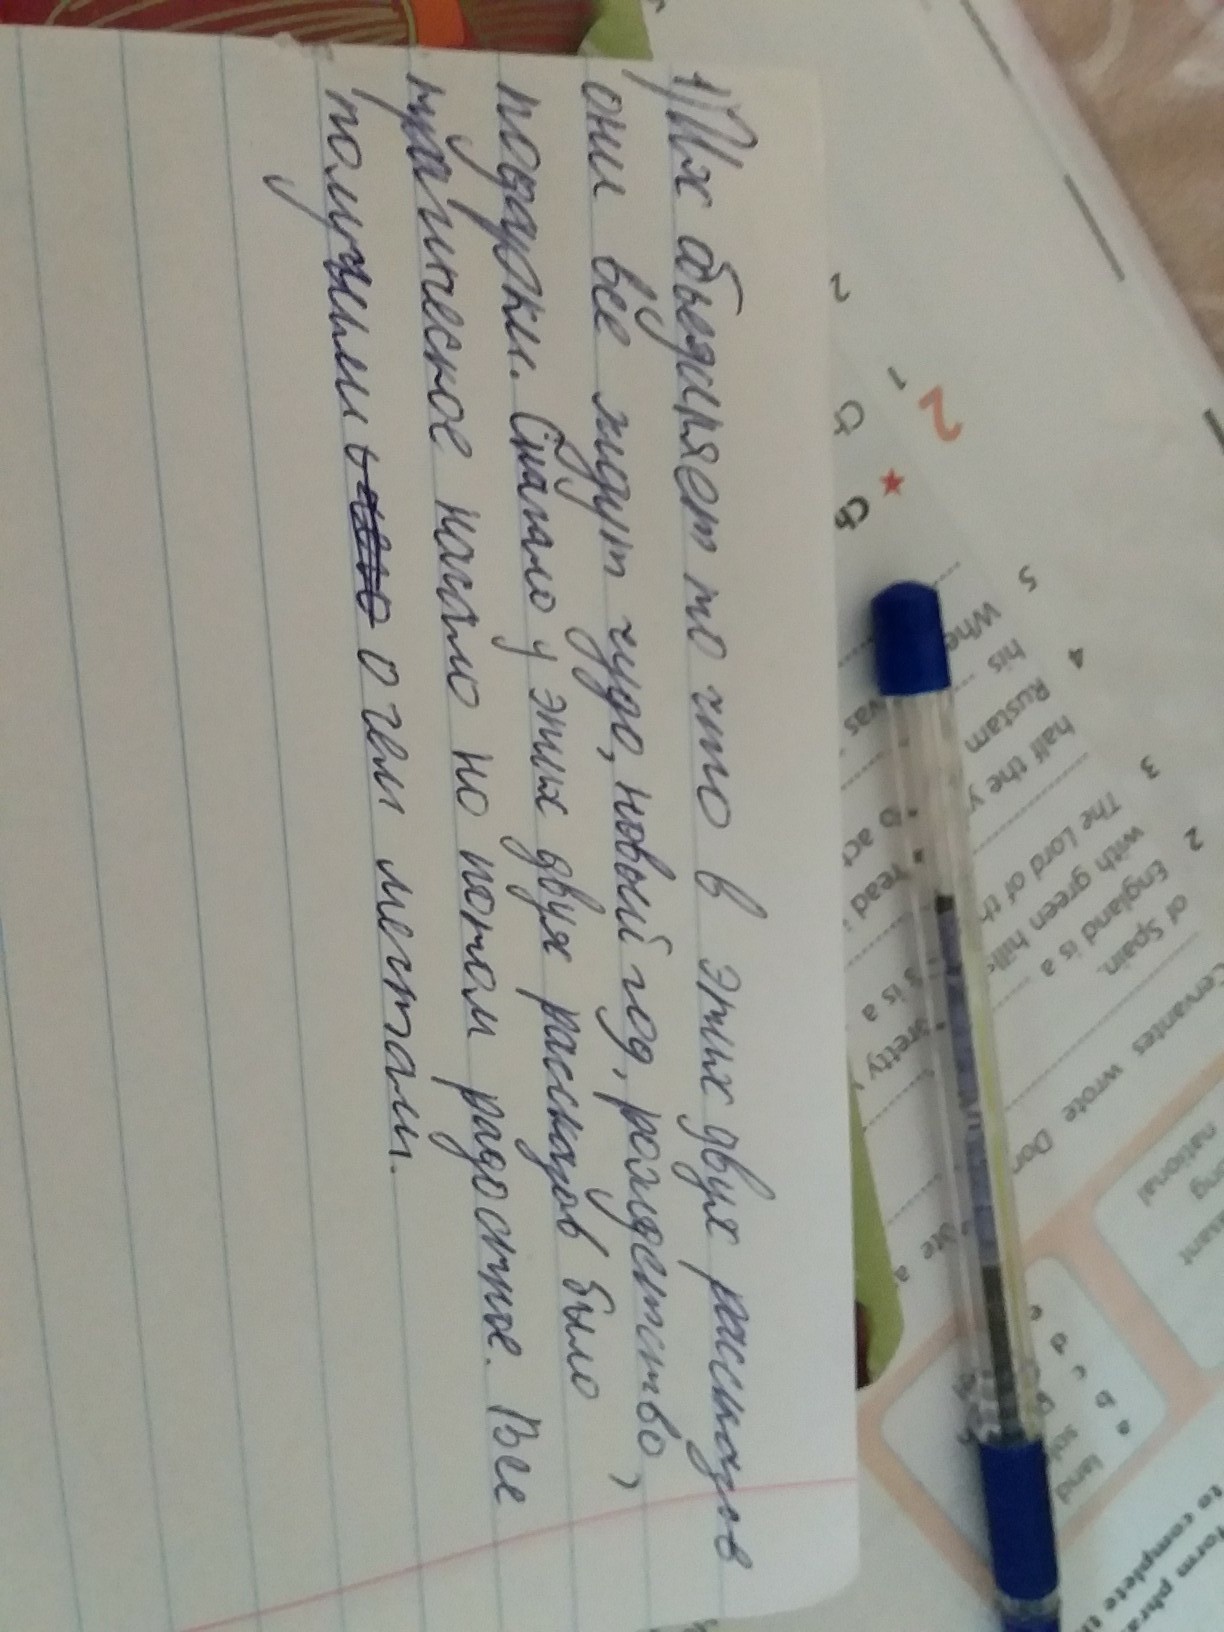 1) Их обьединяет то что в этих двух рассказов
они все ждут чудо, новый год, рождество,
подарки. Сначало у этих двух рассказов было
трагическое начало но потом радостное. Все
получили о чем мечтали.
2
1
2
5
Whe
his
was
4
Rustam
half the y
to act
3
The Lord of th
with green hills
read
2
England is a
of Spain.
's is a
pretty
Cervantes wrote Don
national
land
a
b
c
d
e
form phra
to complete th